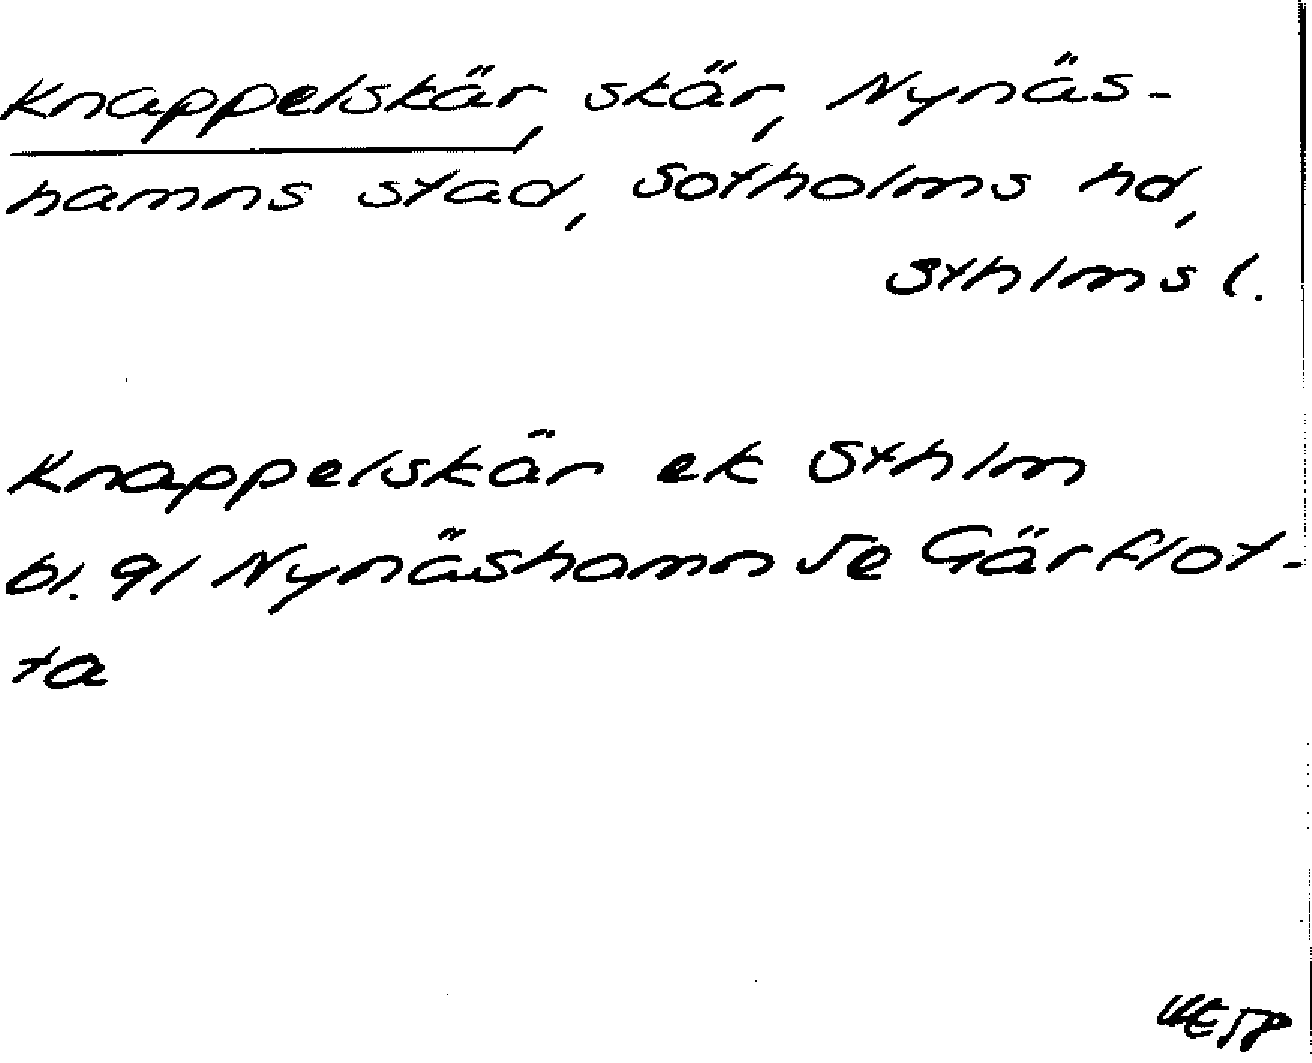 Knappelskär, skär, Nynäs-
hamns stad, Sotholms hd,
Sthlms l.
Knappelskär ek Sthlm
bl. 91 Nynäshamn Je Gärflot-
ta